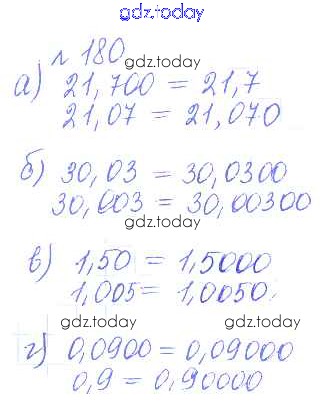 gdz.today
№ 180
gdz.today
а) 21,700 = 21,7
21,07 = 21,070
gdz.today
б) 30,03 = 30,0300
30,003 = 30,00300
gdz.today
в) 1,50 = 1,5000
1,005 = 1,0050
gdz.today gdz.today
г) 0,0900 = 0,09000
0,9 = 0,90000